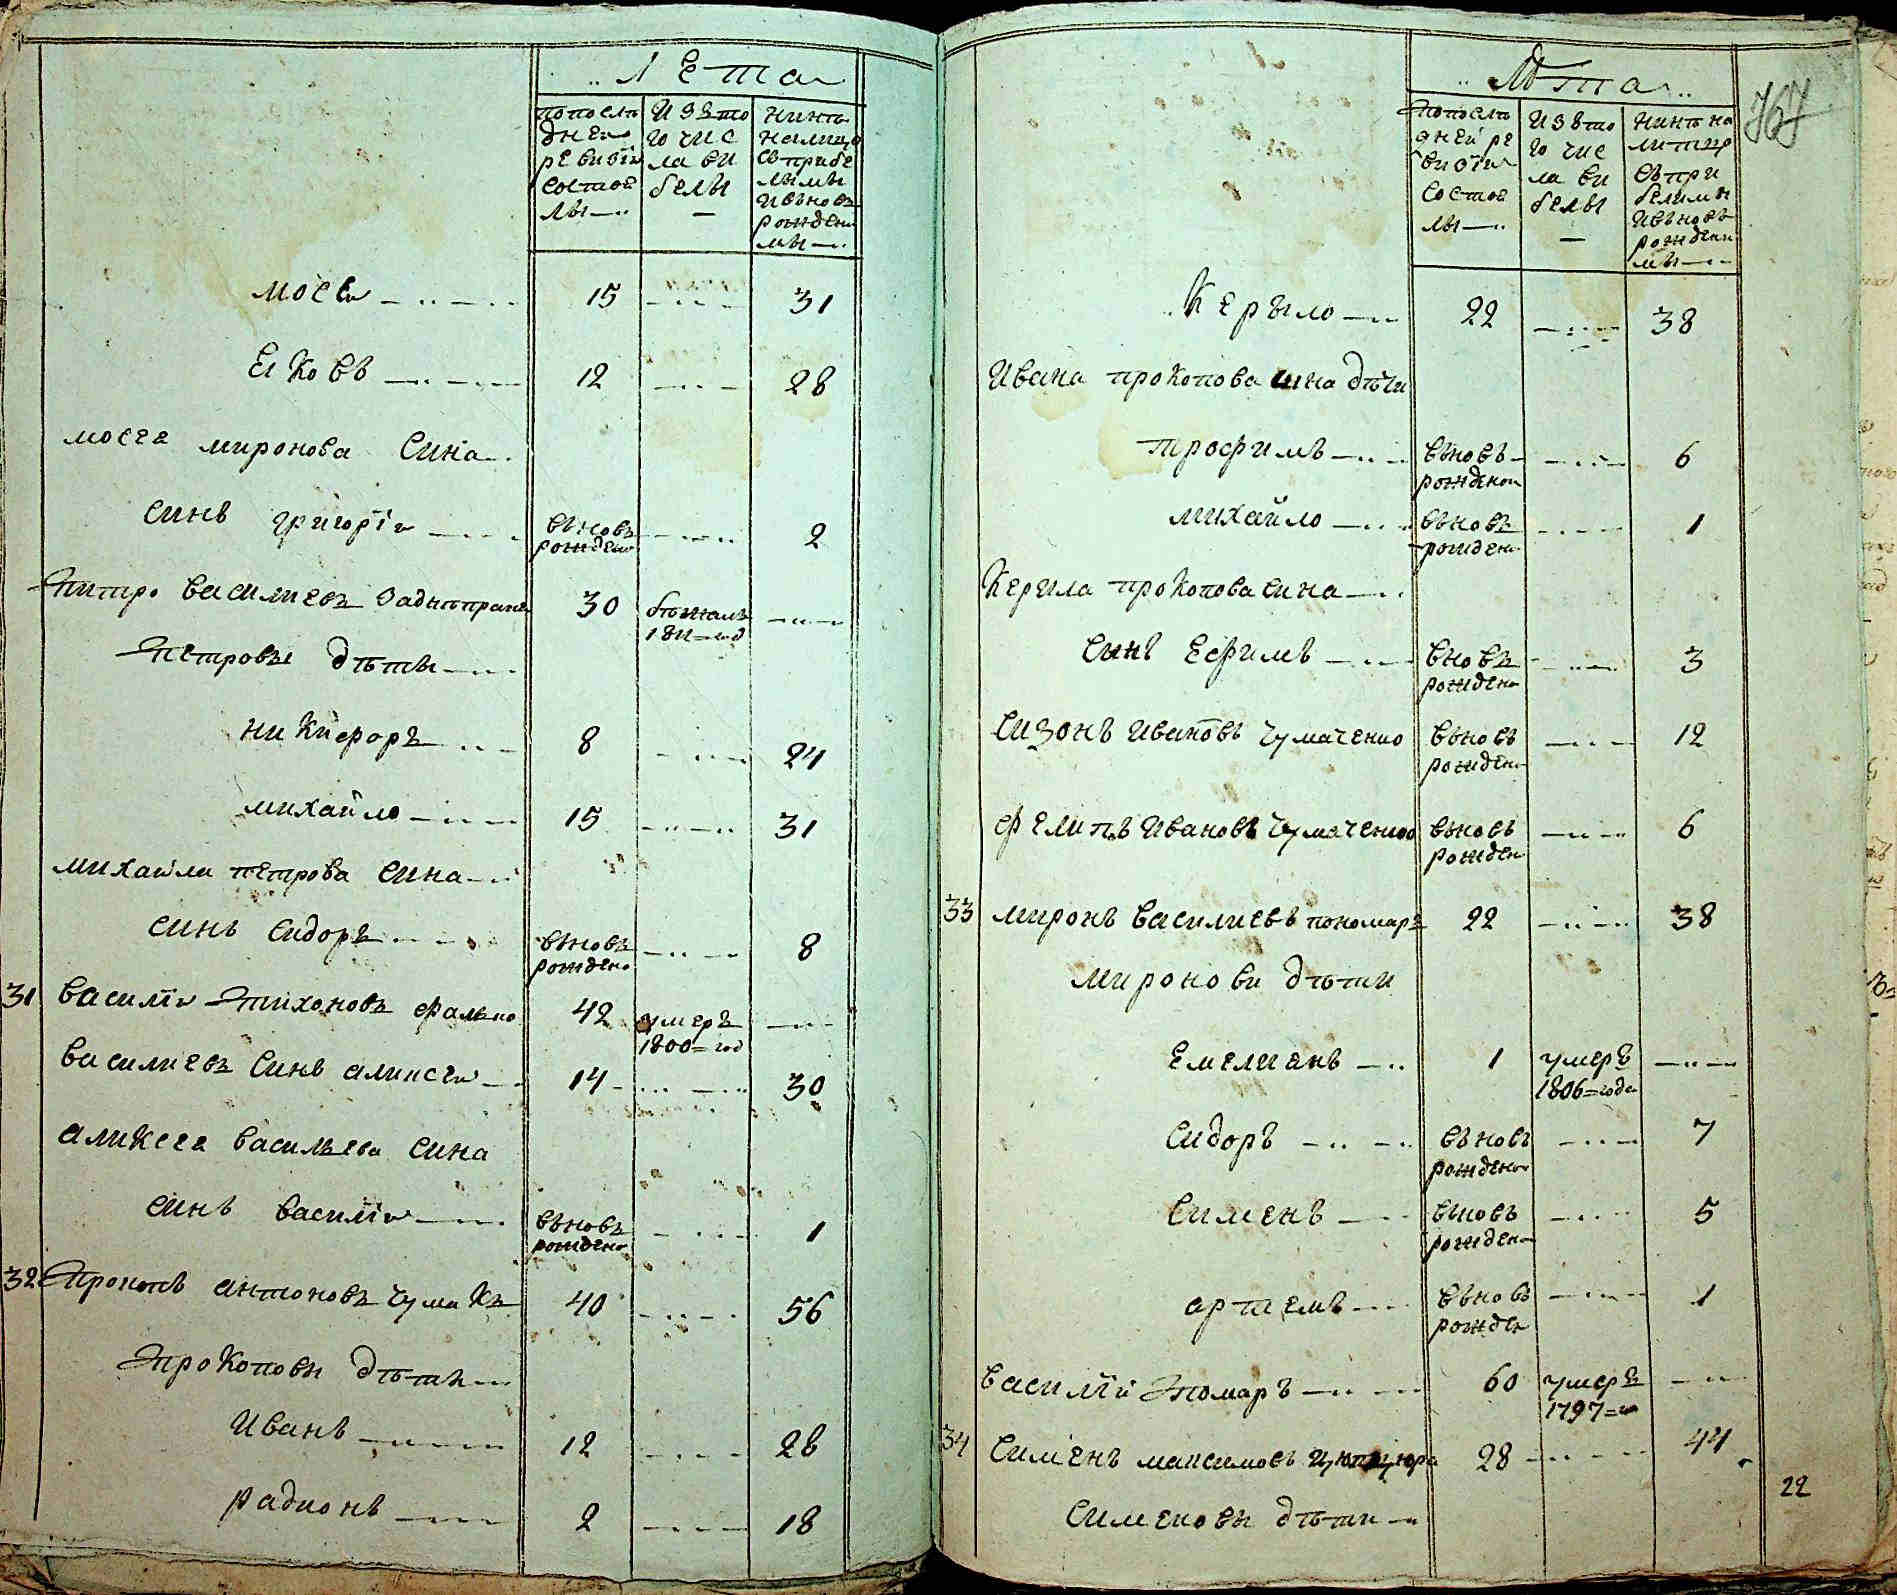 Лета
попослѣ
дней
ревизїи
состоя
лы
Изъто
го чис
ла вы
былы
Нинѣ
налицо
съприбы
лымы
ивьновь
рожденн
мы
мосѣй 15 31
Яковъ 12 28
мосея миронова сина
синъ григорїй вьновь 2
рожден
питро василиевъ Задьнѣпраны 30 бѣжалъ
1811 год
петровы дѣты
никифоръ 8 24
михайло 15 31
михайли петрова сина
синъ сидоръ вьновь 8
рождено
31 василїй тихоновъ фалько 42 умеръ
1800 год
василиевъ синъ аликсѣй 14 30
аликсея васильева сина
синъ василїй вьновь 1
рождено
32 прокопъ антоновъ чумакъ 40 56
прокоповы дѣты
иванъ 12 28
радионъ 2 18
Лѣта
767
попослѣ
дней ре
визїи
состоя
лы
Изъто
го чис
ла вы
былы
Нинѣ на
лицо
съпри
былимы
ивьновь
рожденн
мы
Керыло 22 38
ивана прокопова сина дѣти
трофимъ вьновь 6
рожденои
михайло вьновь 1
рождени
Керила прокопова сина
сынъ ефимъ вновь 3
рождено
сизонъ ивановъ чумаченко вьновь 12
рожден
филипъ ивановъ чумаченко вьновь 6
рожден
33 миронъ василиевъ пономаръ 22 38
миронови дѣти
емелиянъ 1 умеръ
1806 года
сидоръ вьновь 7
рождено
симѣнъ вновь 5
рожден
артіемъ вьновь 1
рожден
василїй помаръ 60 умеръ
1797
34 симѣнъ максимовъ 28 44
симѣновы дѣти
22